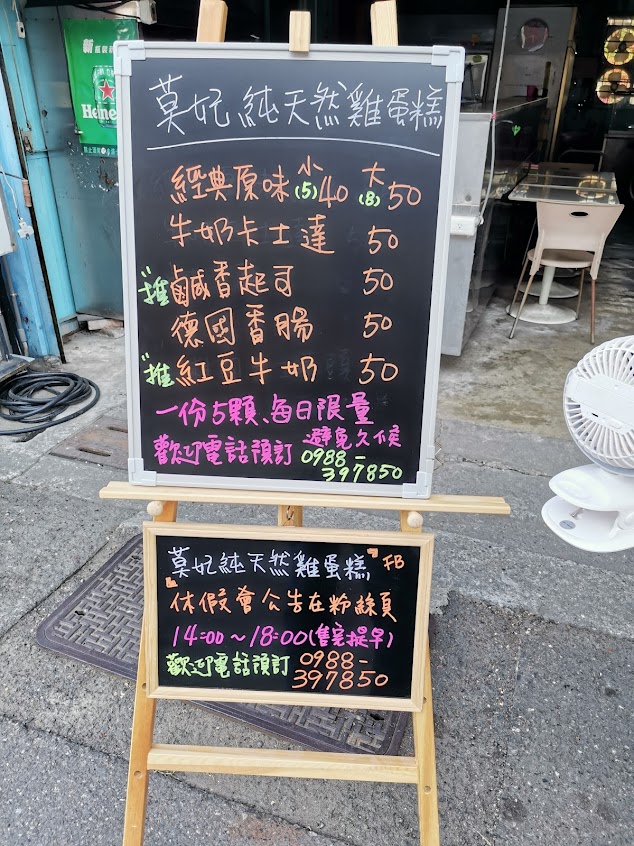 莫妃純天然雞蛋糕
經典原味 小(5)40 大(8)50
牛奶卡士達 50
"推 鹹香起司 50
德國香腸 50
"推 紅豆牛奶 50
一份5顆、每日限量
歡迎電話預訂 避免久候
0988-
397850
莫妃純天然雞蛋糕 FB
休假會公告在粉絲頁
14:00~18:00(售完提早)
歡迎電話預訂 0988-
397850
Heine